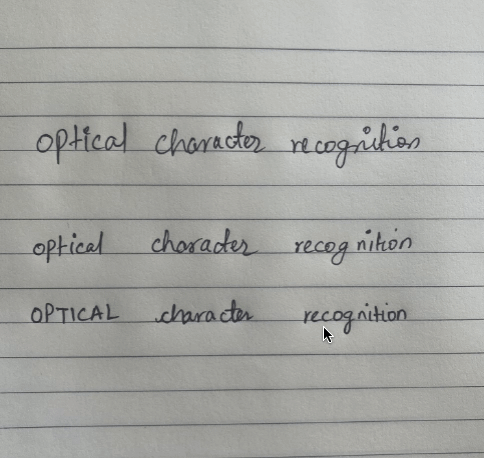 optical character recognition
optical character recognition
OPTICAL character recognition